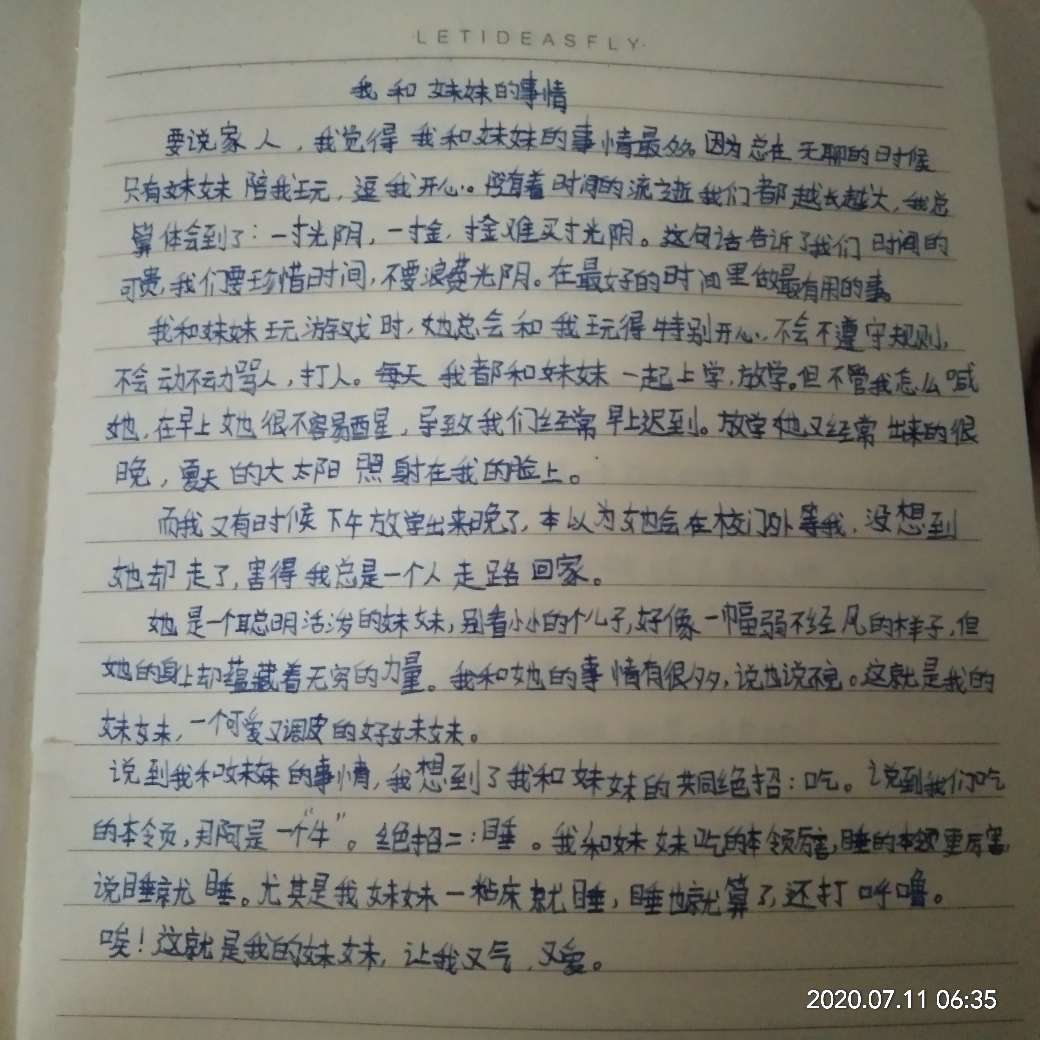 ·LETIDEASFLY·
我和妹妹的事情
要说家人，我觉得我和妹妹的事情最多。因为总在无聊的时候
只有妹妹陪我玩，逗我开心。随着时间的流逝我们都越长越大，我总
算体会到了：一寸光阴，一寸金，寸金难买寸光阴。这句话告诉了我们时间的
可贵，我们要珍惜时间，不要浪费光阴。在最好的时间里做最有用的事。
我和妹妹玩游戏时，她总会和我玩得特别开心，不会不遵守规则，
不会动不动骂人，打人。每天我都和妹妹一起上学，放学。但不管我怎么喊
她，在早上她很不容易醒，导致我们经常早上迟到。放学她又经常出来的很
晚，夏天的大太阳照射在我的脸上。
而我又有时候下午放学出来晚了，本以为她会在校门外等我，没想到
她却走了，害得我总是一个人走路回家。
她是一个聪明活泼的妹妹，别看小小的个儿子，好像一幅弱不经风的样子，但
她的身上却蕴藏着无穷的力量。我和她的事情有很多，说也说不完。这就是我的
妹妹，一个可爱又调皮的好妹妹。
说到我和妹妹的事情，我想到了我和妹妹的共同绝招：吃。说到我们吃
的本领，那可是一个“牛”。绝招二：睡。我和妹妹吃的本领厉害，睡的本领更厉害，
说睡就睡。尤其是我妹妹一粘床就睡，睡也就算了，还打呼噜。
唉！这就是我的妹妹，让我又气，又爱。
2020.07.11 06:35